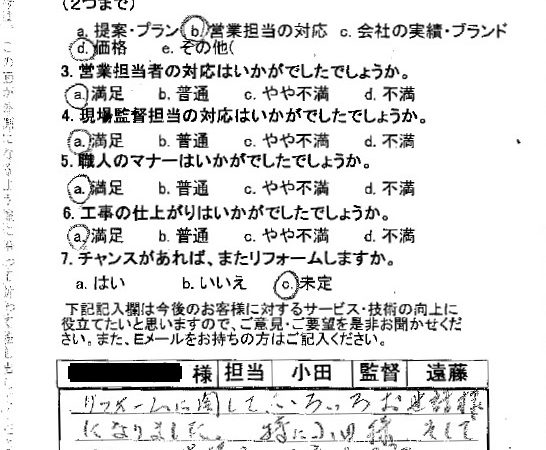 (2つまで)
a. 提案・プラン b. 営業担当の対応 c. 会社の実績・ブランド
d. 価格 e. その他(
3. 営業担当者の対応はいかがでしたでしょうか。
a. 満足 b. 普通 c. やや不満 d. 不満
4. 現場監督担当の対応はいかがでしたでしょうか。
a. 満足 b. 普通 c. やや不満 d. 不満
5. 職人のマナーはいかがでしたでしょうか。
a. 満足 b. 普通 c. やや不満 d. 不満
6. 工事の仕上がりはいかがでしたでしょうか。
a. 満足 b. 普通 c. やや不満 d. 不満
7. チャンスがあれば、またリフォームしますか。
a. はい b. いいえ c. 未定
下記記入欄は今後のお客様に対するサービス・技術の向上に
役立てたいと思いますので、ご意見・ご要望を是非お聞かせくだ
さい。また、Eメールをお持ちの方はご記入ください。
様 担当 小田 監督 遠藤
リフォームに関して、いろいろお世話様
になりました。特に小田様 そして